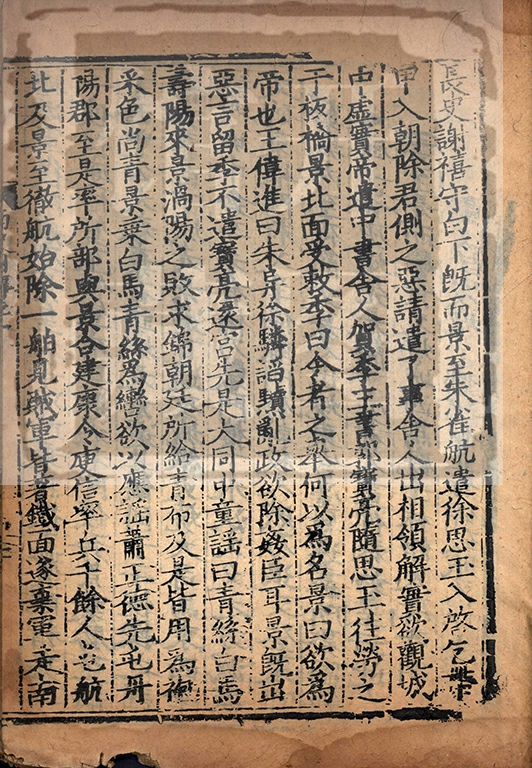 長史謝禧守白下既而景至朱雀航遣徐思玉入啓乞帶
甲入朝除君側之惡請遣了事舍人出相領解實欲觀城
中虛實帝遣中書舍人賀季主書郭寶亮隨思玉往勞之
于板橋景北面受敕季曰今者之舉何以爲名景曰欲爲
帝也王偉進曰朱异徐驎諂黷亂政欲除姦臣耳景既出
惡言留季不遣寶亮還宮先是大同中童謠曰青絲白馬
壽陽來景渦陽之敗求錦朝廷所給青布及是皆用爲袍
采色尚青景乗白馬青絲爲轡欲以應謠蕭正德先屯丹
陽郡至是率所部與景合建康令庾信率兵千餘人屯航
北及景至徹航始除一舶見賊軍皆着鐵面遂棄軍走南